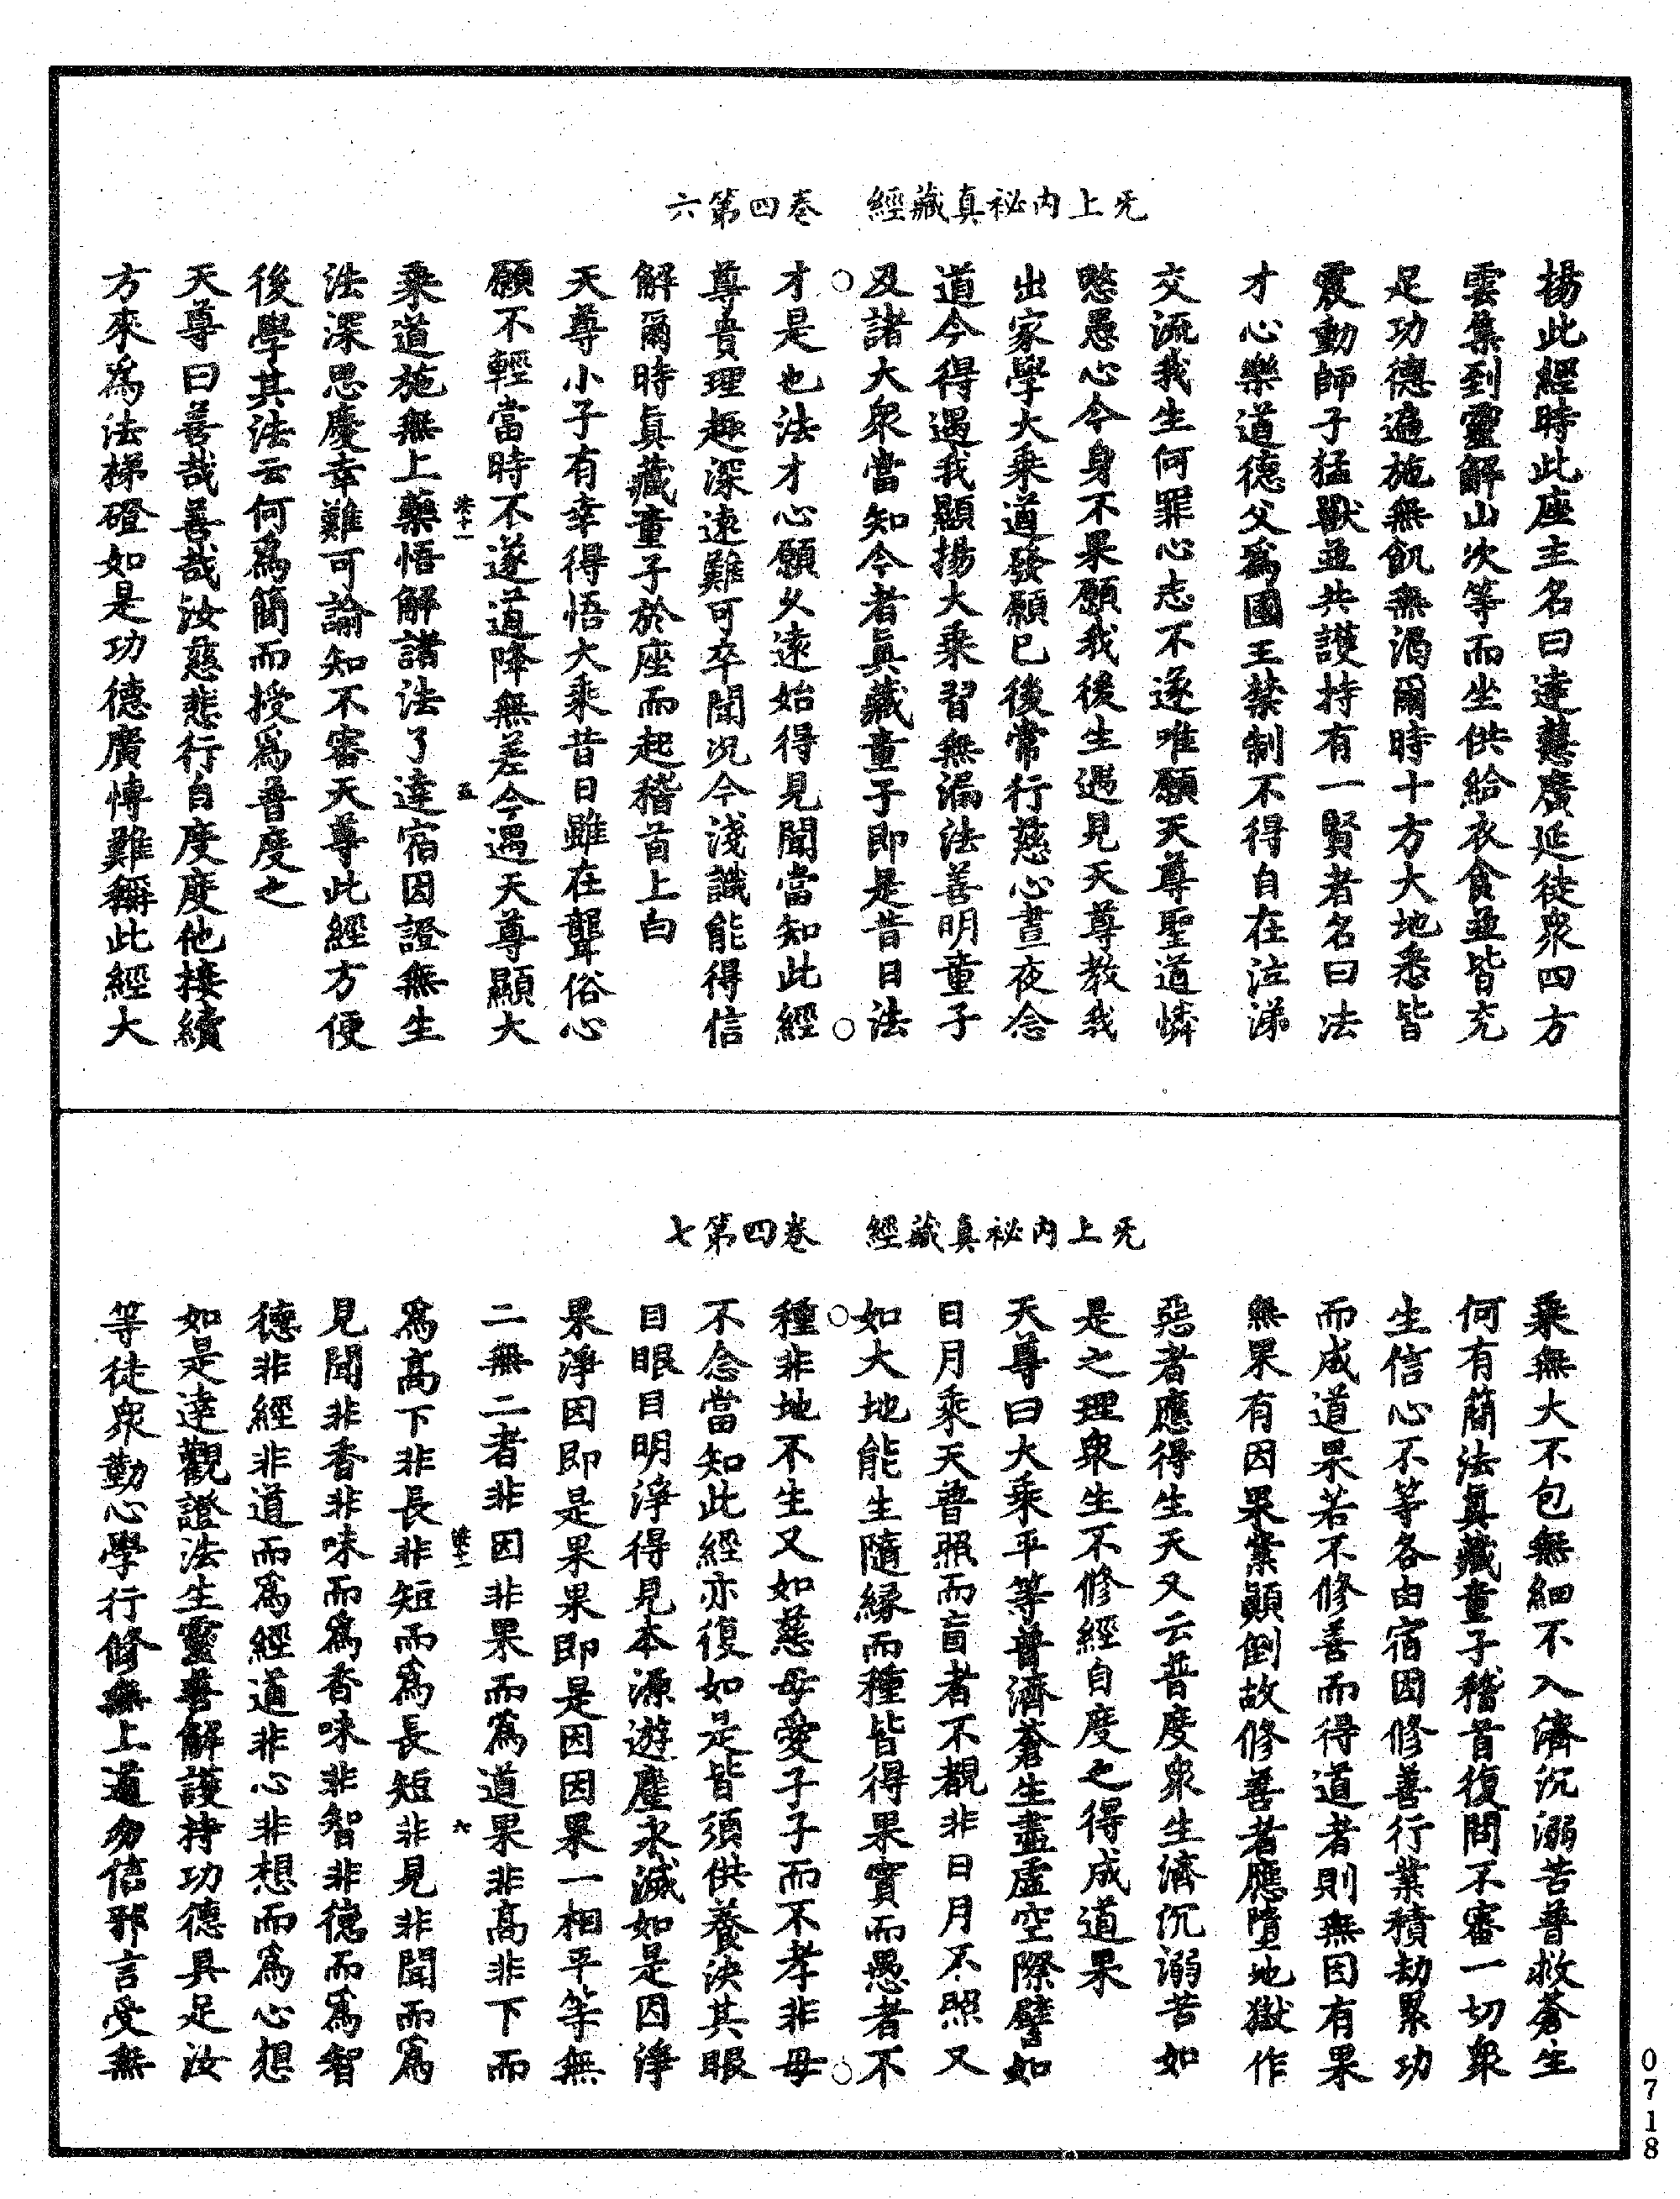 无上內祕真藏經　卷四第六
揚此經時此座主名曰達慧廣延徒眾四方
雲集到靈解山次等而坐供給衣食並皆充
足功德遍施無飢無渴爾時十方大地悉皆
震動師子猛獸並共護持有一賢者名曰法
才心樂道德父爲國王禁制不得自在泣涕
交流我生何罪心志不遂唯願天尊聖道憐
愍愚心今身不果願我後生遇見天尊教我
出家學大乘道發願已後常行慈心晝夜念
道今得遇我顯揚大乘習無漏法善明童子
及諸大眾當知今者眞藏童子即是昔日法
才是也法才心願久遠始得見聞當知此經
尊貴理趣深遠難可卒聞況今淺識能得信
解爾時眞藏童子於座而起稽首上白
天尊小子有幸得悟大乘昔日雖在聾俗心
願不輕當時不遂道降無差今遇天尊顯大
乘道施無上藥悟解諸法了達宿因證無生
法深思慶幸難可諭知不審天尊此經方便
後學其法云何爲簡而授爲普度之
天尊曰善哉善哉汝慈悲行自度度他接續
方來爲法梯磴如是功德廣博難稱此經大
无上內祕真藏經　卷四第七
乘無大不包無細不入濟沉溺苦普救蒼生
何有簡法眞藏童子稽首復問不審一切眾
生信心不等各由宿因修善行業積劫累功
而成道果若不修善而得道者則無因有果
無果有因果業顚倒故修善者應墮地獄作
惡者應得生天又云普度眾生濟沉溺苦如
是之理眾生不修經自度之得成道果
天尊曰大乘平等普濟蒼生盡虛空際譬如
日月乘天普照而盲者不覩非日月不照又
如大地能生隨緣而種皆得果實而愚者不
種非地不生又如慈母愛子子而不孝非母
不念當知此經亦復如是皆須供養決其眼
目眼目明淨得見本源遊塵永滅如是因淨
果淨因即是果果即是因因果一相平等無
二無二者非因非果而爲道果非高非下而
爲高下非長非短而爲長短非見非聞而爲
見聞非香非味而爲香味非智非德而爲智
德非經非道而爲經道非心非想而爲心想
如是達觀證法生靈善解護持功德具足汝
等徒眾勤心學行修無上道勿信邪言受無
0718